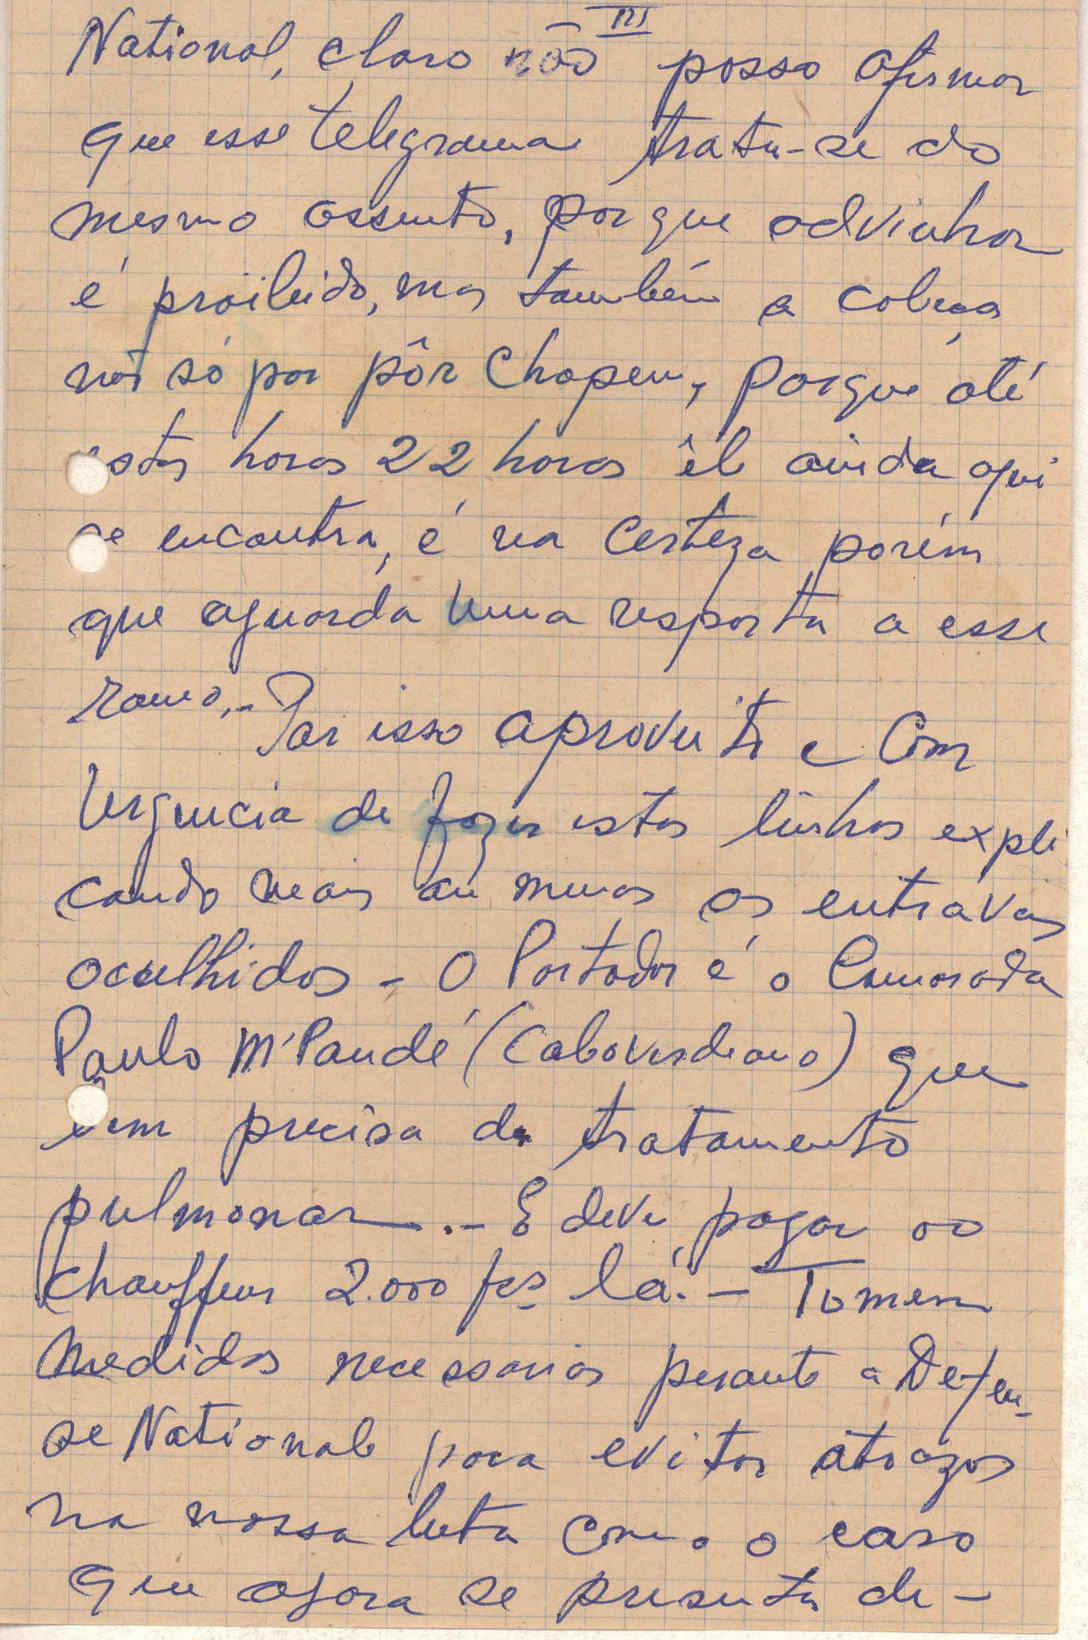 III
National, claro não posso afirmar
que esse telegrama trata-se do
mesmo assunto, porque advinhar
é proibido, mas também a cabeça
não só por pôr chapeu, porque até
estas horas 22 horas êle ainda aqui
se encontra, é na certeza porém
que aguarda uma resposta a esse
ramo,- Por isso aproveito e com
Urgencia de fazer estas linhas expli
cando mais ou menos os entraves
ocolhidos - O Portador é o Camarada
Paulo M'Pandé (Caboverdeano) que
bem precisa de tratamento
pulmonar.- E deve pagar ao
chauffeur 2.000 fcs lá.- Tomem
Medidas necessarias perante a Defen-
se National para evitar atrazos
na nossa luta como o caso
que agora se presenta de-